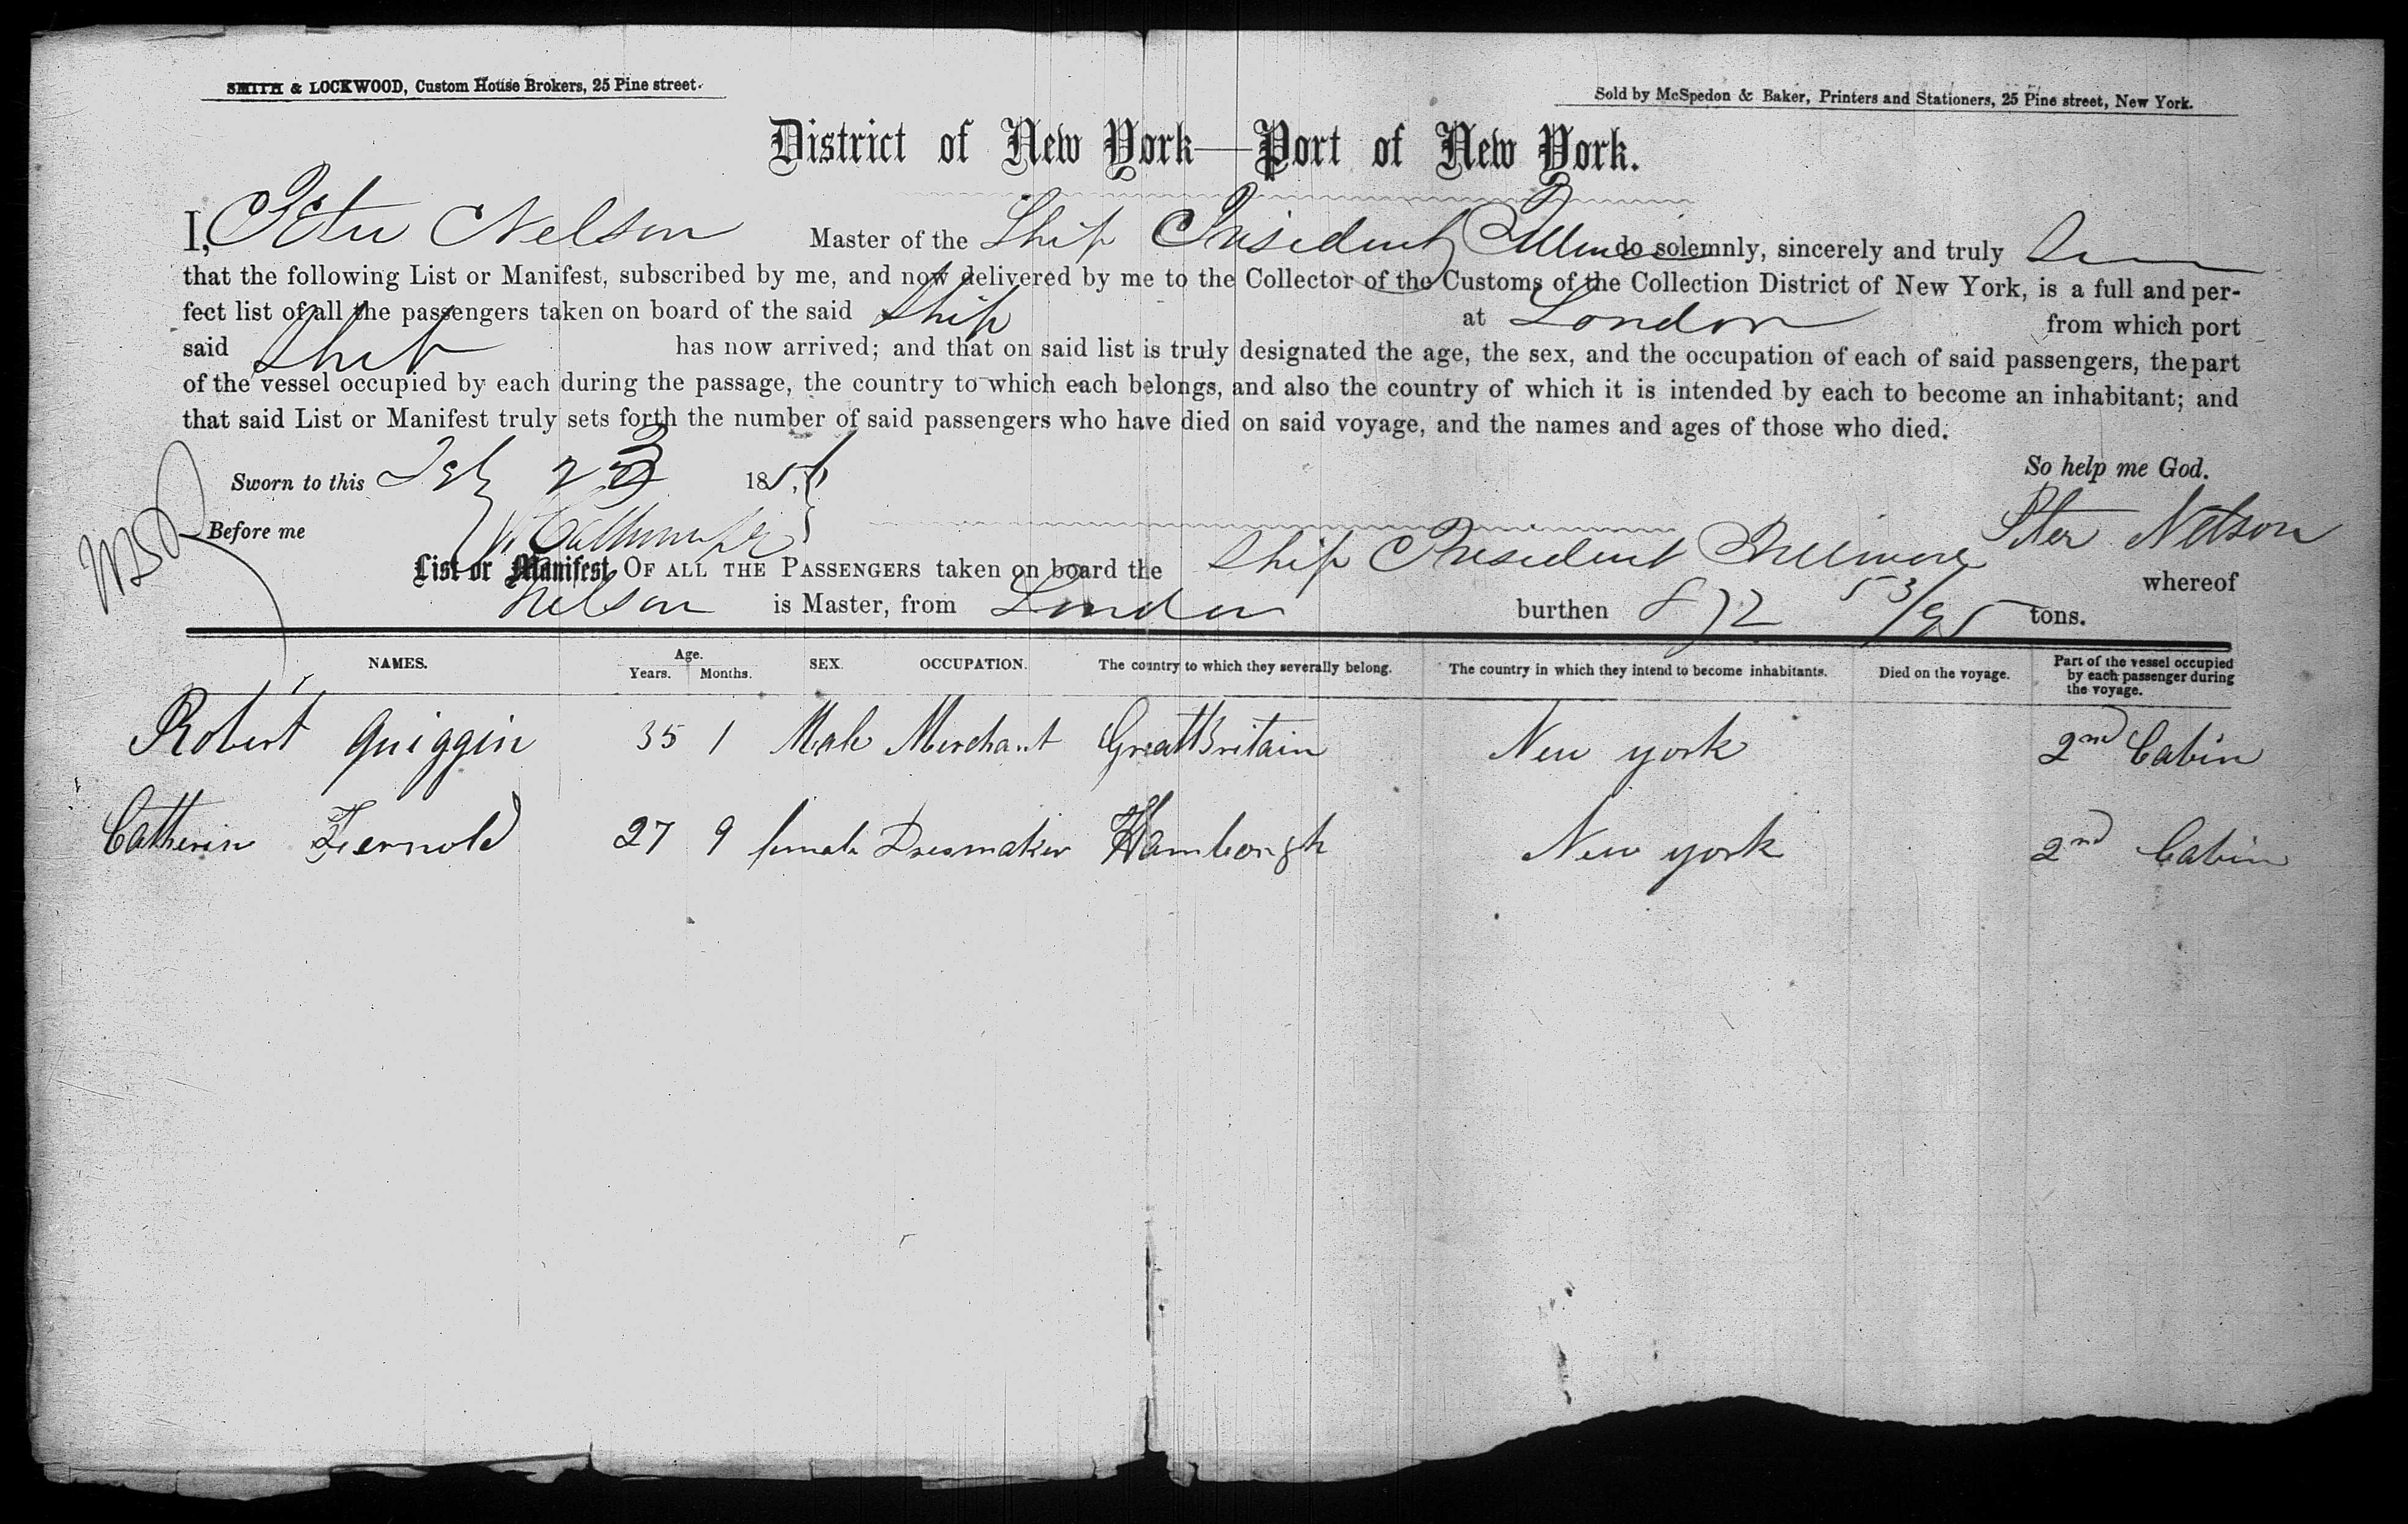 SMITH & LOCKWOOD, Custom House Brokers, 25 Pine street.
Sold by McSpedon & Baker, Printers and Stationers, 25 Pine street, New York.
District of New York—Port of New York.
I, Peter Nelson Master of the Ship President do solemnly, sincerely and truly
that the following List or Manifest, subscribed by me, and now delivered by me to the Collector of the Customs of the Collection District of New York, is a full and per-
fect list of all the passengers taken on board of the said Ship at London from which port
said Ship has now arrived; and that on said list is truly designated the age, the sex, and the occupation of each of said passengers, the part
of the vessel occupied by each during the passage, the country to which each belongs, and also the country of which it is intended by each to become an inhabitant; and
that said List or Manifest truly sets forth the number of said passengers who have died on said voyage, and the names and ages of those who died.
So help me God.
Sworn to this 185
Before me
Peter Nelson
List or Manifest OF ALL THE PASSENGERS taken on board the Ship President whereof
Nelson is Master, from London burthen 872 53/95 tons.
NAMES. Age. Years. Months. SEX. OCCUPATION. The country to which they severally belong. The country in which they intend to become inhabitants. Died on the voyage. Part of the vessel occupied by each passenger during the voyage.
Robert Quiggin 35 1 Male Merchant Great Britain New york 2nd Cabin
Catherin 27 9 female Dresmaker Hamborgh New york 2nd Cabin